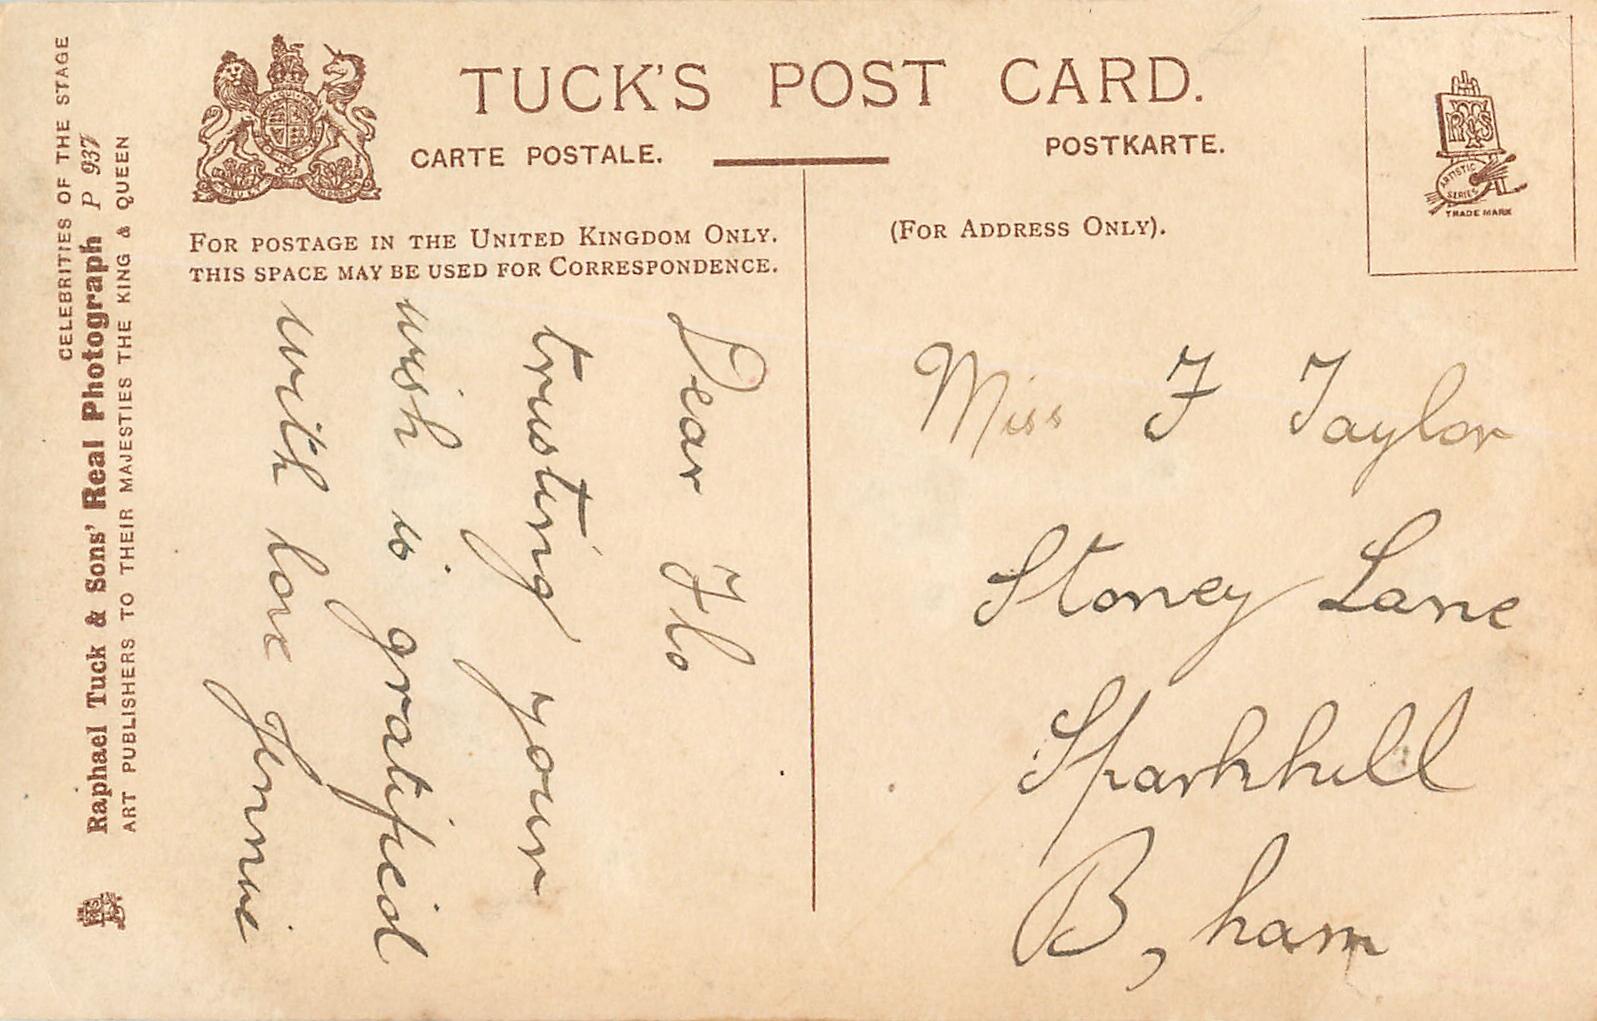 CELEBRITIES OF THE STAGE
Raphael Tuck & Sons' Real Photograph P 937
ART PUBLISHERS TO THEIR MAJESTIES THE KING & QUEEN
TUCK'S POST CARD.
CARTE POSTALE.
POSTKARTE.
FOR POSTAGE IN THE UNITED KINGDOM ONLY.
THIS SPACE MAY BE USED FOR CORRESPONDENCE.
(FOR ADDRESS ONLY).
ARTISTIC
SERIES
TRADE MARK
Dear Flo
trusting your
wish is gratified
with love Jennie
Miss F Taylor
Stoney Lane
Sparkhill
B,ham